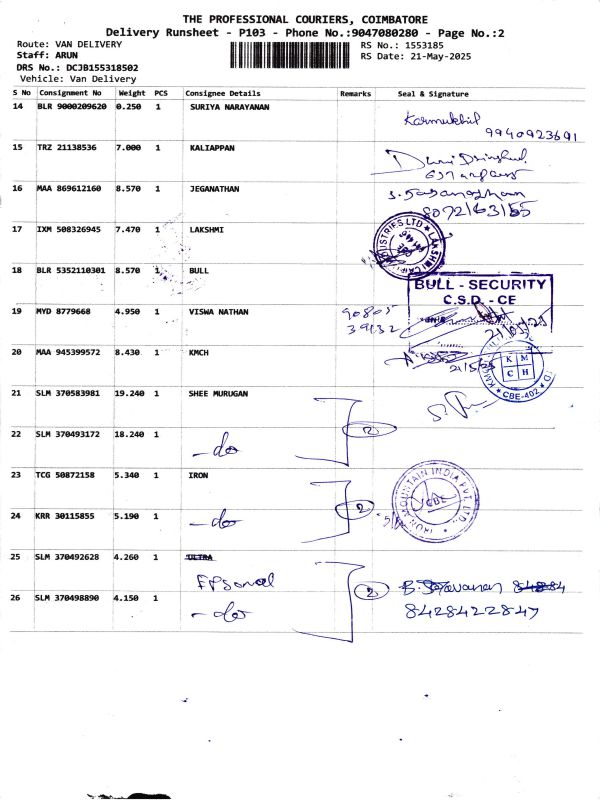 THE PROFESSIONAL COURIERS, COIMBATORE
Delivery Runsheet - P103 - Phone No.:9047080280 - Page No.:2
Route: VAN DELIVERY
RS No.: 1553185
Staff: ARUN
RS Date: 21-May-2025
DRS No.: DCJB155318502
Vehicle: Van Delivery
S No Consignment No Weight PCS Consignee Details Remarks Seal & Signature
14 BLR 9000209620 0.250 1 SURIYA NARAYANAN
Karmukhil
9940923691
15 TRZ 21138536 7.000 1 KALIAPPAN
16 MAA 869612160 8.570 1 JEGANATHAN
17 IXM 508326945 7.470 1 LAKSHMI
18 BLR 5352110301 8.570 1 BULL
BULL - SECURITY
C.S.D. - CE
19 MYD 8779668 4.950 1 VISWA NATHAN 90805
39132
21/05/25
20 MAA 945399572 8.430 1 KMCH
21/5/25
K M
C H
CBE-402
21 SLM 370583981 19.240 1 SHEE MURUGAN
22 SLM 370493172 18.240 1
-do 2
23 TCG 50872158 5.340 1 IRON
IRON MOUNTAIN INDIA PVT. LTD.
CBE
24 KRR 30115855 5.190 1
-do 2
25 SLM 370492628 4.260 1 ULTRA
2 B. Saravanan
26 SLM 370498890 4.150 1
-do 8428422847